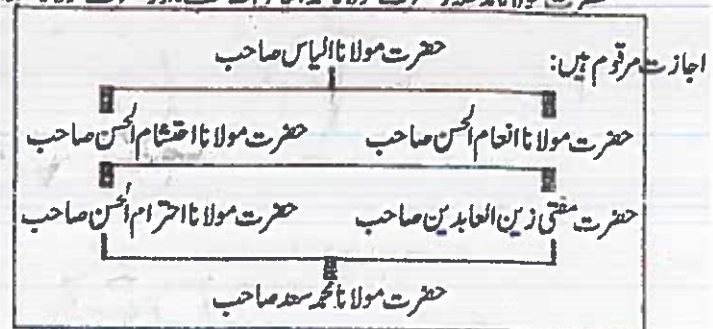 اجازت مرقوم ہیں:
حضرت مولانا الیاس صاحب
حضرت مولانا انعام الحسن صاحب حضرت مولانا احتشام الحسن صاحب
حضرت مفتی زین العابدین صاحب حضرت مولانا احترام الحسن صاحب
حضرت مولانا محمد سعد صاحب